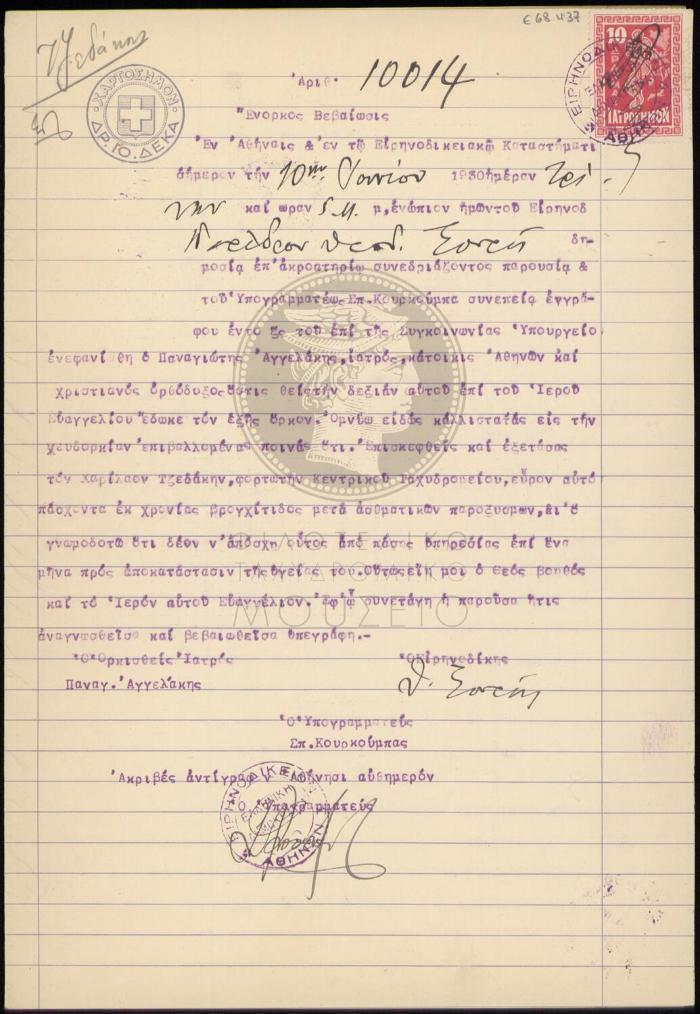 Ε68.437
Τζεδάκης
ΧΑΡΤΟΣΗΜΟΝ
ΔΡ.ΙΟ.ΔΕΚΑ
10
ΙΑΤΡΟΣΗΜΟΝ
ΕΙΡΗΝΟΔΙΚΕΙΟΝ
ΑΘΗΝΩΝ
Ἀριθ. 10014
Ἔνορκος Βεβαίωσις
Ἐν Ἀθήναις & ἐν τῷ Εἰρηνοδικειακῷ Καταστήματι
σήμερον τήν 10ην Ἰουνίου 1930 ἡμέραν Τρί-
την καί ωραν 5 μ.μ, ἐνώπιον ἡμῶντοῦ Εἰρηνοδ
δη-
μοσίᾳ ἐπ'ἀκροατηρίῳ συνεδριάζοντος παρουσίᾳ &
τοῦ Ὑπογραμματέως Σπ.Κουρκούμπα συνεπείᾳ ἐγγρά-
φου ἐντο ξς τοῦ ἐπί τῆς Συγκοινωνίας Ὑπουργείο
ἐνεφανίσθη ὁ Παναγιώτης Ἀγγελάκης, ἰατρός, κάτοικις Ἀθηνῶν καί
χριστιανός ὀρθόδοξος ὅστις θείς τήν δεξιάν αὐτοῦ ἐπί τοῦ Ἱεροῦ
Εὐαγγελίου ἔδωκε τόν ἑξῆς ὅρκον. Ὀμνύω εἰδώς κάλλιστα τάς εἰς τήν
ψευδορκίαν ἐπιβαλλομένας ποινάς ὅτι. Ἐπισκεφθείς καί ἐξετάσας
τόν Χαρίλαον Τζεδάκην, φορτωτήν Κεντρικοῦ Ταχυδρομείου, εὗρον αὐτό
πάσχοντα ἐκ χρονίας βρογχίτιδος μετά ἀσθματικῶν παροξυσμῶν, δι'ὅ
γνωμοδοτῶ ὅτι δέον ν'ἀπόσχῃ οὗτος ἀπό πάσης ὑπηρεσίας ἐπί ἕνα
μῆνα πρός ἀποκατάστασιν τῆς ὑγείας του. Οὕτως εἴη μοι ὁ Θεός βοηθός
καί τό Ἱερόν αὐτοῦ Εὐαγγέλιον. Ἐφ'ᾧ συνετάγη ἡ παροῦσα ἥτις
ἀναγνωσθεῖσα καί βεβαιωθεῖσα ὑπεγράφη.-
Ὁ Ὁρκισθείς Ἰατρός Ὁ Εἰρηνοδίκης
Παναγ. Ἀγγελάκης
Ὁ Ὑπογραμματεύς
Σπ.Κουρκούμπας
Ἀκριβές ἀντίγραφον Ἀθήνησι αὐθημερόν
Ὁ Ὑπογραμματεύς
ΕΙΡΗΝΟΔΙΚΕΙΟΝ
ΕΛΛΗΝΙΚΗ
ΑΘΗΝΩΝ
ΦΙΛΟΤΕΛΙΚΟ
ΤΑΧΥΔΡΟΜΙΚΟ
ΜΟΥΣΕΙΟ